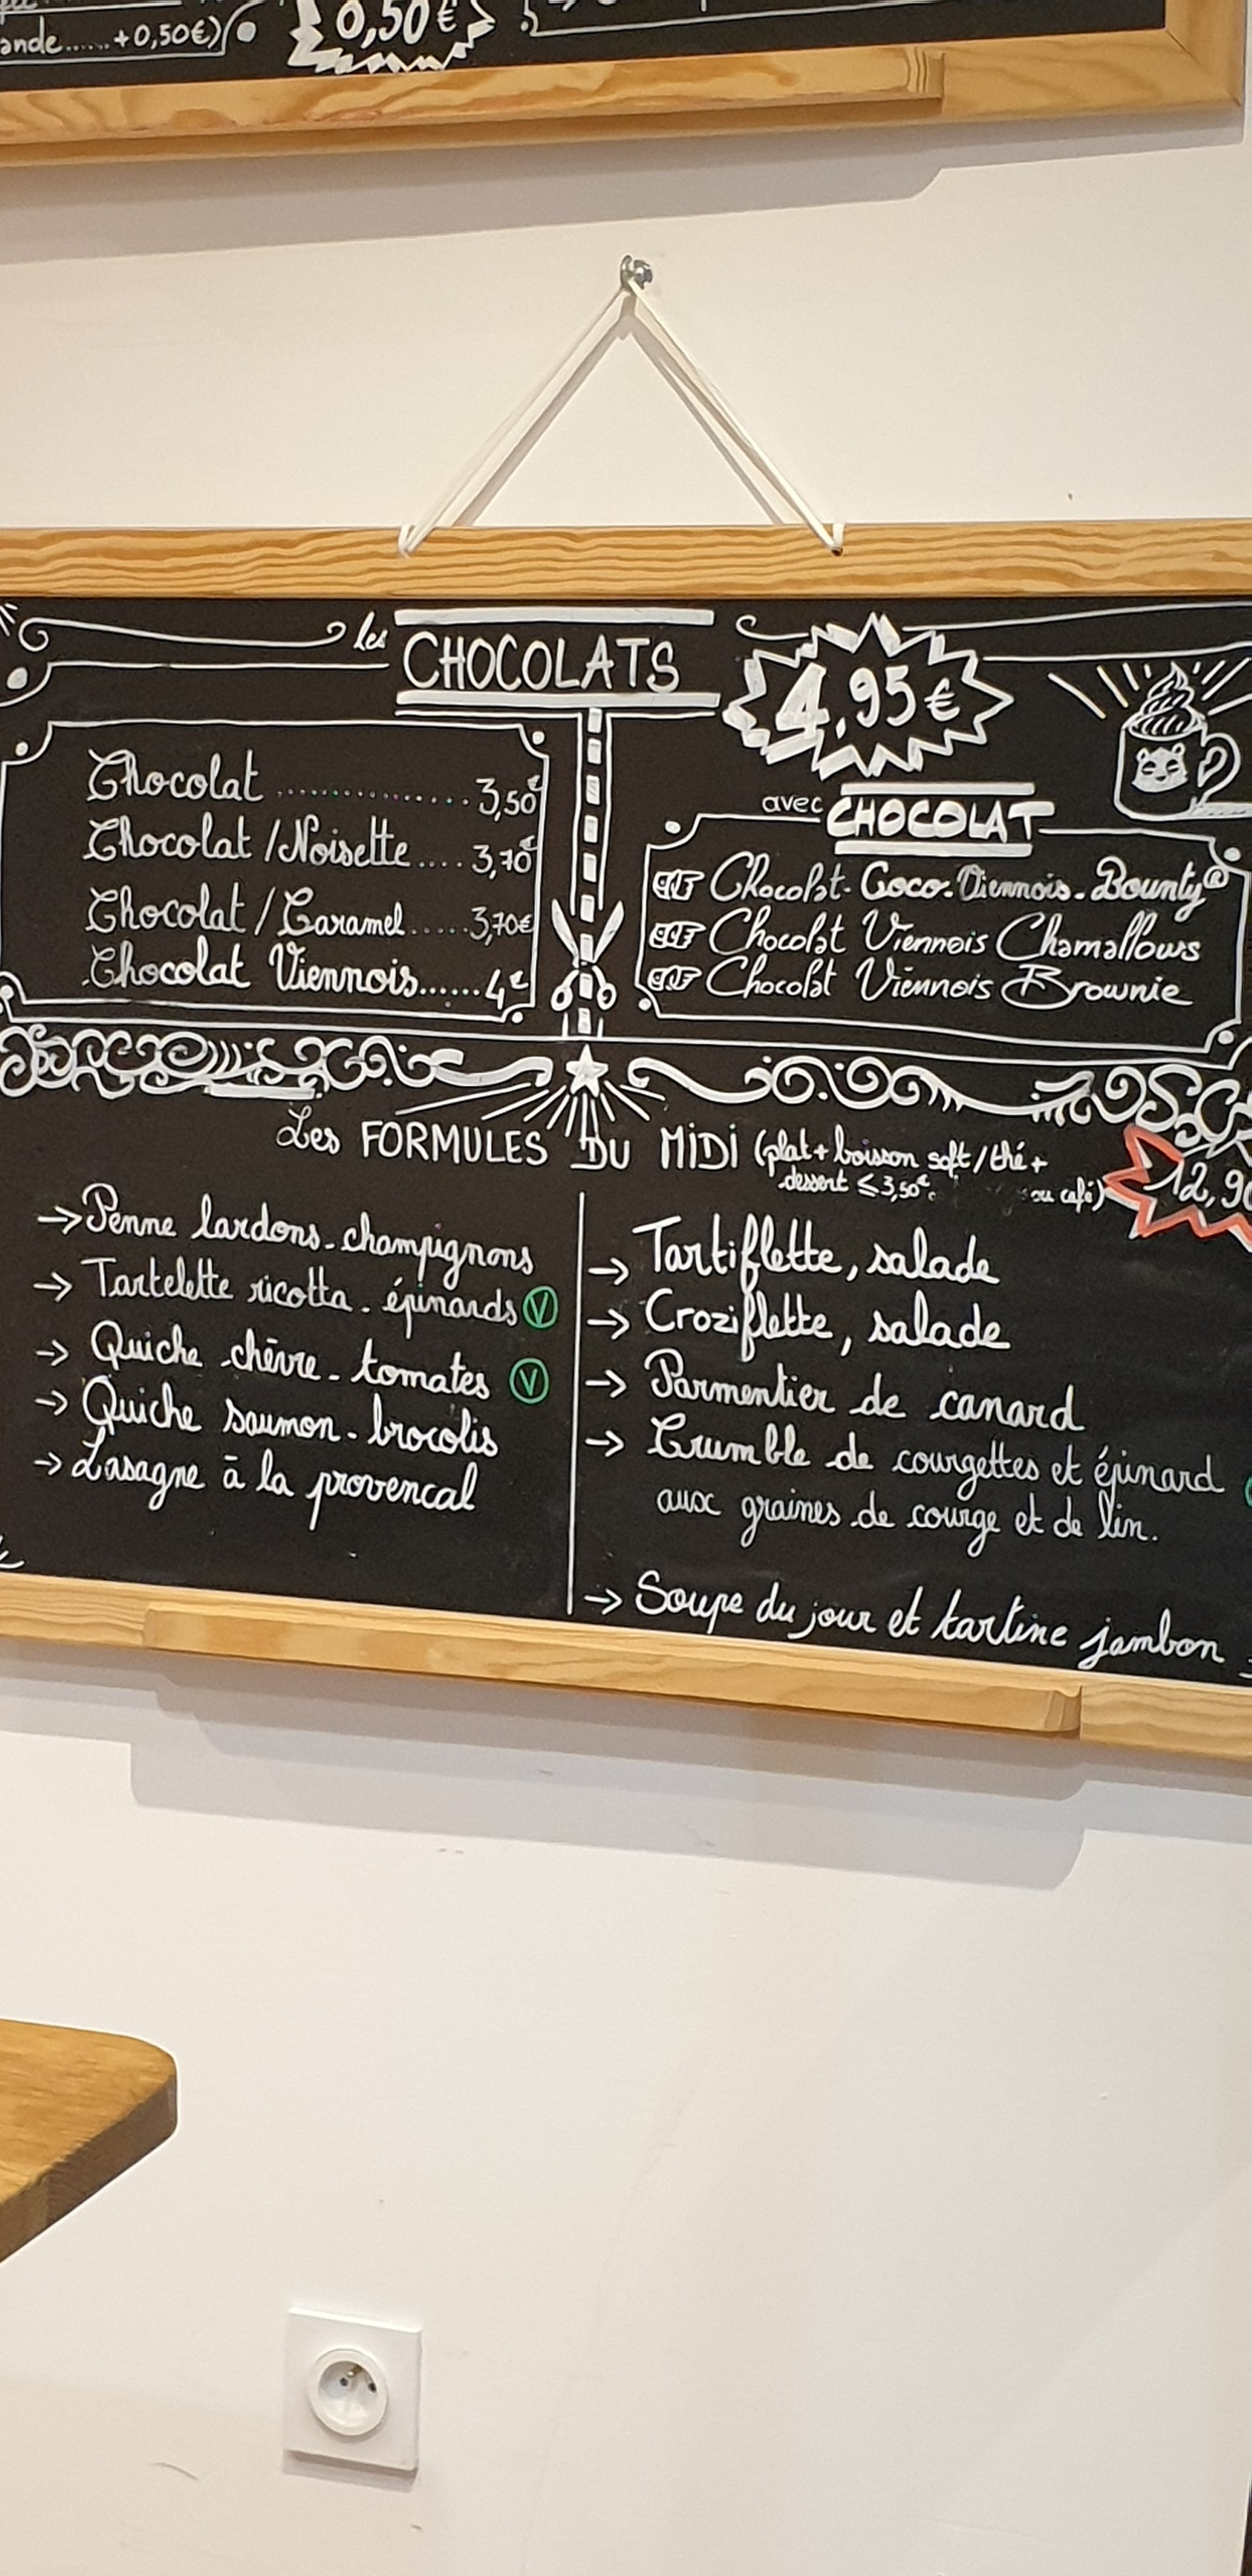 ande......+0,50€)
0,50€
les CHOCOLATS
4,95€
Chocolat ................ 3,50€
Chocolat /Noisette .... 3,70€
Chocolat / Caramel ..... 3,70€
Chocolat Viennois...... 4€
avec CHOCOLAT
Chocolat-Coco-Viennois-Bounty®
Chocolat Viennois Chamallows
Chocolat Viennois Brownie
Les FORMULES DU MiDi (plat+boisson soft/thé+
dessert ≤ 3,50€. ou café)
12,90
→ Penne lardons-champignons
→ Tartelette ricotta - épinards V
→ Quiche chèvre - tomates V
→ Quiche saumon - brocolis
→ Lasagne à la provencal
→ Tartiflette, salade
→ Croziflette, salade
→ Parmentier de canard
→ Crumble de courgettes et épinard
aux graines de courge et de lin.
→ Soupe du jour et tartine jambon